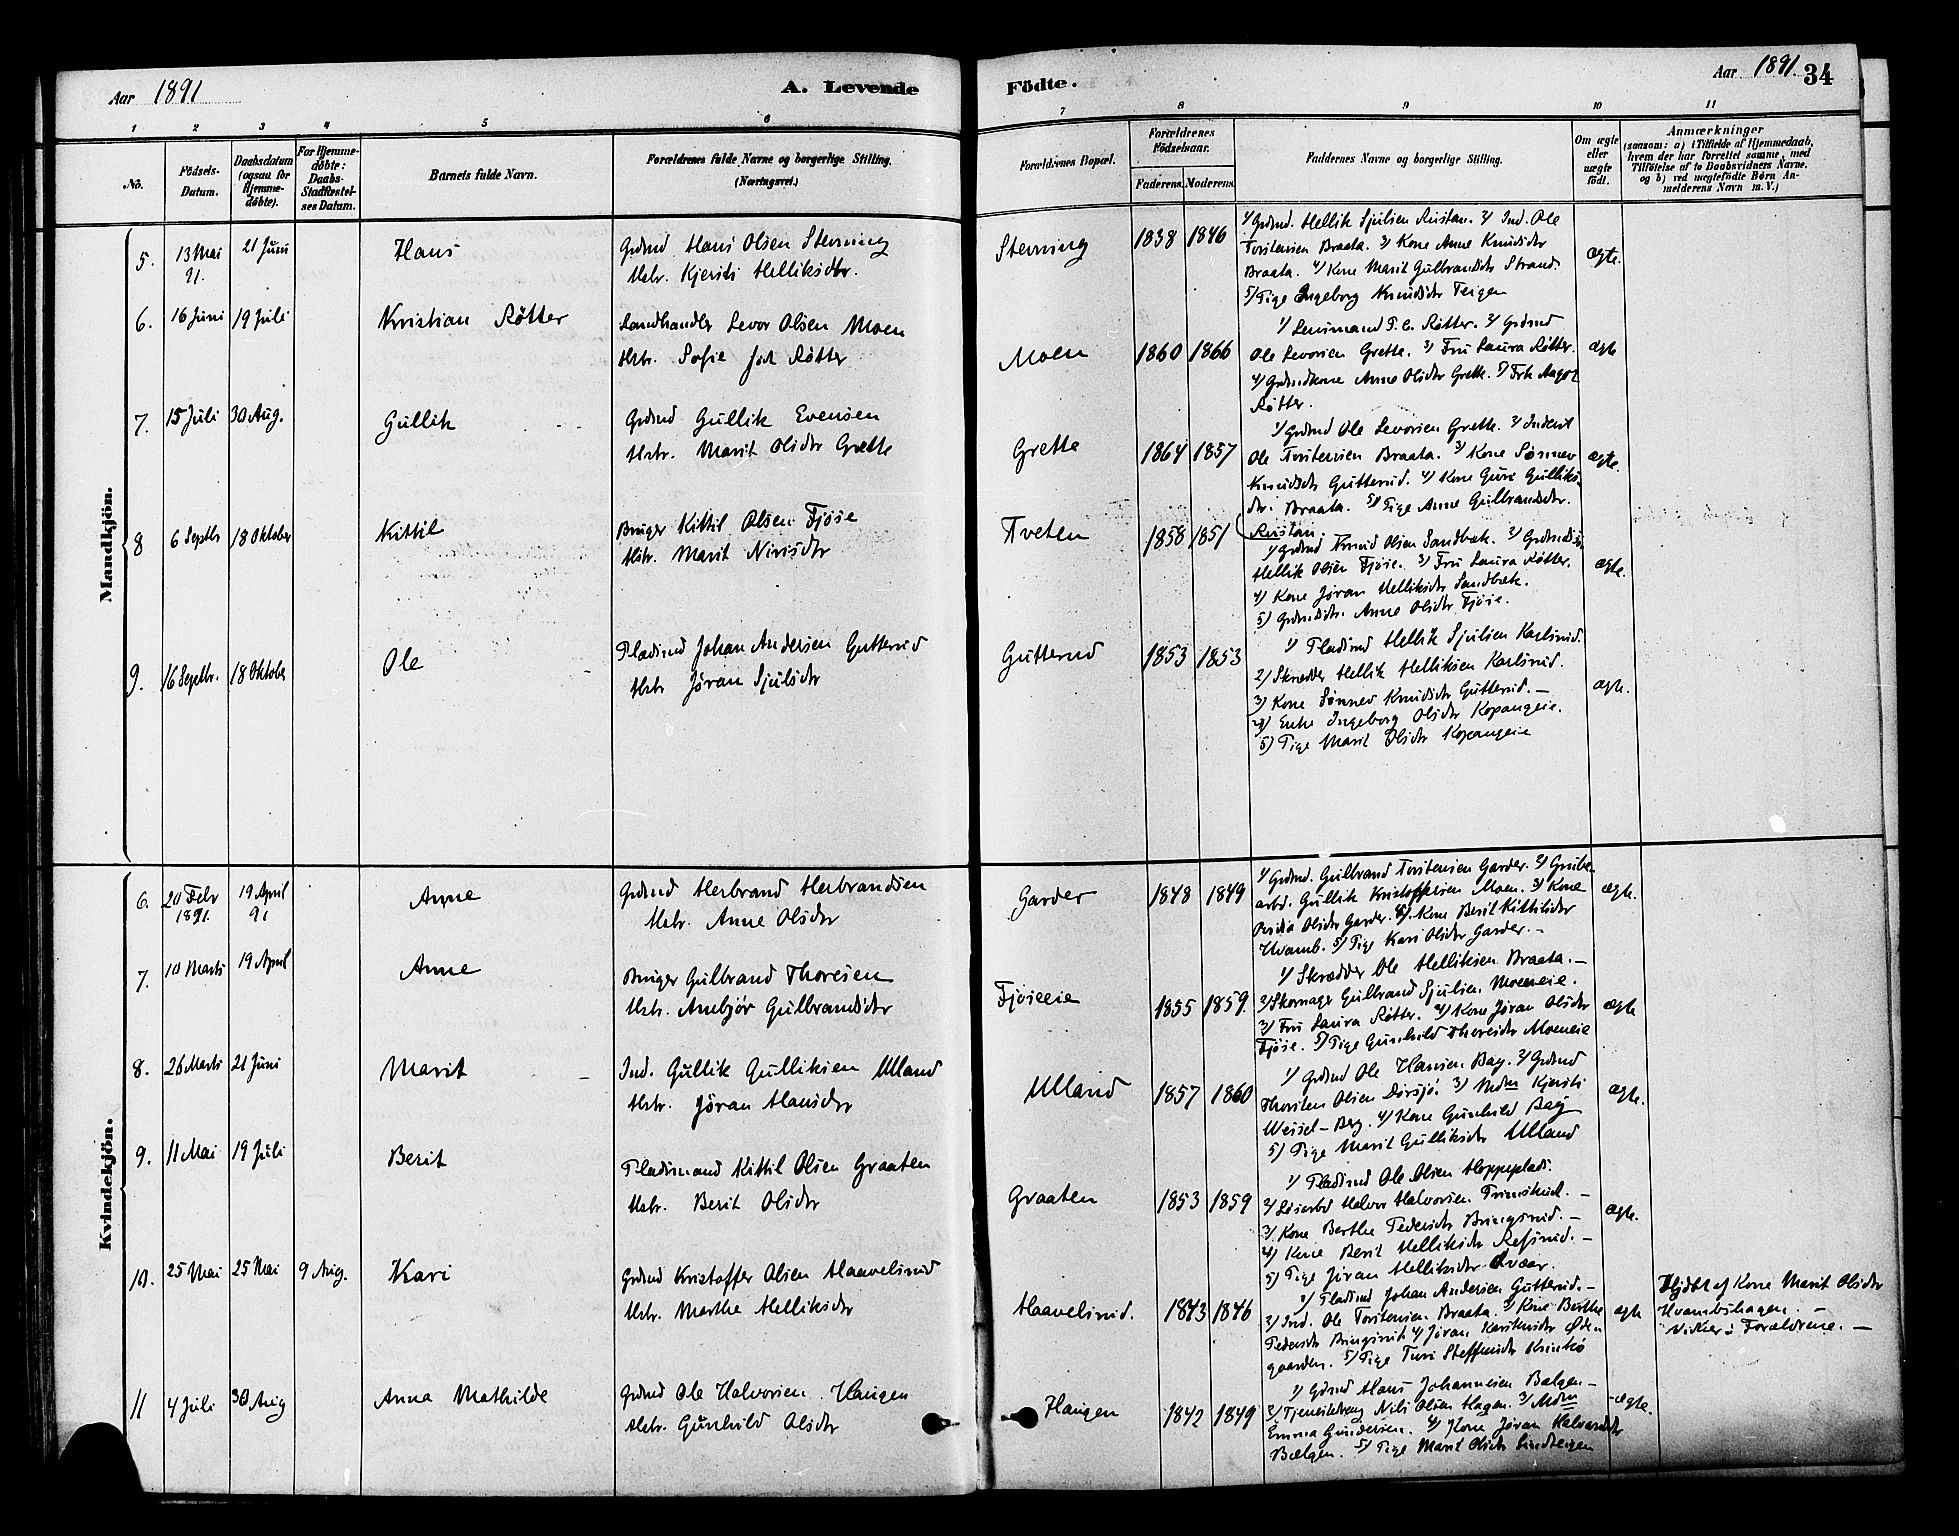 Aar 1891
A. Levende
Födte.
Aar 1891.
34
1 2 3 4 5 6 7 8 9 10 11
No.
Födsels-Datum.
Daabsdatum (ogsaa for Hjemme-döbte).
For Hjemme-döbte: Daabs-Stadfæstel-ses Datum.
Barnets fulde Navn.
Forældrenes fulde Navne og borgerlige Stilling.
(Næringsvei.)
Forældrenes Bopæl.
Forældrenes Födselsaar.
Faderens. Moderens.
Faddernes Navne og borgerlige Stilling.
Om ægte eller uægte födt.
Anmærkninger
(saasom: a) i Tilfælde af Hjemmedaab, hvem der har forrettet samme, med Tilföielse af to Daabsvidners Navne, og b) ved uægtefödte Børn An-melderens Navn m. V.)
Mandkjön.
5. 13 Mai 91. 21 Juni Hans
Grdmd Hans Olsen Stevning
Hstr. Kjersti Helliksdtr.
Stevning 1838 1846
1/ Grdmd. Hellik Sjulsen Rustan. 2/ Ind. Ole
Torstensen Braata. 3/ Kone Anne Knudsdtr
Braata. 4/ Kone Marit Gulbrandsdtr Strand.
5/ Pige Ingeborg Knudsdtr Teigen
ægte.
6. 16 Juni 19 Juli Kristian Røtter
Landhandler Levor Olsen Moen
Hstr. Sofie Røtter
Moen 1860 1866
1/ Lensmand P. C. Røtter. 2/ Grdmd
Ole Levorsen Grette. 3/ Fru Laura Røtter.
4/ Grdmdkone Anne Olsdtr Grette. 5/ Frk Aagot
Røtter.
ægte
7. 15 Juli 30 Aug. Gullik
Grdmd Gullik Evensen
Hstr. Marit Olsdtr Grette
Grette 1864 1857
1/ Grdmd Ole Levorsen Grette. 2/ Inderst
Ole Torstensen Braata. 3/ Kone Sønnev
Knudsdtr Gutterud. 4/ Kone Guri Galliks
dtr. Braata. 5/ Pige Anne Gulbrandsdtr.
Rustan.
ægte.
8 6 Septbr 18 Oktober Kittil
Bruger Kittil Olsen Fjøse
Hstr. Marit Nirisdtr
Tveten 1858 1851
1/ Grdmd Knud Olsen Sandbæk. 2/ Grdmdsøn
Hellik Olsen Fjøse. 3/ Fru Laura Røtter.
4) Kone Jøran Helliksdtr Sandbæk.
5) Grdmdsdtr. Anne Olsdtr Fjøse.
ægte.
9. 16 Septbr. 18 Oktober Ole
Pladsmd Johan Andersen Gutterud
Hstr Jøran Sjulsdtr
Gutterud 1853 1853
1/ Pladsmd Hellik Sjulsen Karlsrud.
2/ Skrædder Hellik Helliksen Karlsrud.
3) Kone Sønnev Knudsdtr Gutterud. —
4) Enke Ingeborg Olsdtr Kopangeie.
5) Pige Marit Olsdtr Kopangeie
ægte.
Kvindekjön.
6. 20 Febr 1891. 19 April 91 Anne
Grdmd Herbrand Herbrandsen
Hstr. Anne Olsdtr
Garder 1848 1849
1/ Grdmd. Gulbrand Torstensen Garder. 2/ Grube
arbd. Gullik Kristoffersen Moen. 3/ Kone
Olsdtr Garder. 4/ Kone Berit Kittilsdtr
Hvamb. 5/ Pige Kari Olsdtr Garder. —
ægte.
7. 10 Marts 19 April Anne
Bruger Gulbrand Thoresen
Hstr. Ambjør Gulbrandsdtr
Fjøseeie 1855 1859.
1/ Skrædder Ole Helliksen Braata. —
2/ Skomager Gulbrand Sjulsen Moeneie.
3/ Fru Laura Røtter. 4/ Kone Jøran Olsdtr
Fjøse. 5/ Pige Gunhild Thoresdtr Moeneie
ægte
8. 26 Marts 21 Juni Marit
Ind. Gullik Gulliksen Ulland
Hstr. Jøran Hansdtr
Ulland 1857 1860
1/ Grdmd Ole Hansen Bag. 2/ Grdmd
Thorsten Olsen Dørsjø. 3/ Mdm Kjersti
Wessel-Berg. 4/ Kone Gunhild Bag
5) Pige Marit Gulliksdtr Ulland
ægte.
9. 11 Mai 19 Juli Berit
Pladsmand Kittil Olsen Graaten
Hstr. Berit Olsdtr
Graaten 1853 1859
1/ Pladsmd Ole Olsen Hoppeplads.
2/ Løsarbd Halvor Halvorsen Trimsrud. —
3/ Kone Berthe Pedersdtr Bringsrud. —
4) Kone Berit Helliksdtr Refsrud. —
5) Pige Jøran Helliksdtr
ægte.
10. 25 Mai 25 Mai 9 Aug. Kari
Grdmd Kristoffer Olsen Haavelsrud
Hstr. Marthe Helliksdtr
Haavelsrud. 1843 1846
1/ Pladsmd Johan Andersen Gutterud. —
2/ Ind. Ole Torstensen Braata. 3/ Kone Berthe
Pedersdtr Bringsrud 4/ Jøran Øden
gaarden. 5/ Pige Turi Steffensdtr
ægte
Hjdbt af Kone Marit Olsdtr
Hvambshagen. —
Vidner: Forældrene. —
11 4 Juli 30 Aug Anna Mathilde
Grdmd Ole Halvorsen Haugen
Hstr. Gunhild Olsdtr
Haugen 1842 1849
1/ Grdmd Hans Johannesen Bælgen —
2/ Tjenestedreng Nils Olsen Hagen. 3/ Mdm
Emma Gundersen. 4/ Kone Jøran Halvorsdtr
Bælgen. 5/ Pige Marit Olsdtr
ægte.